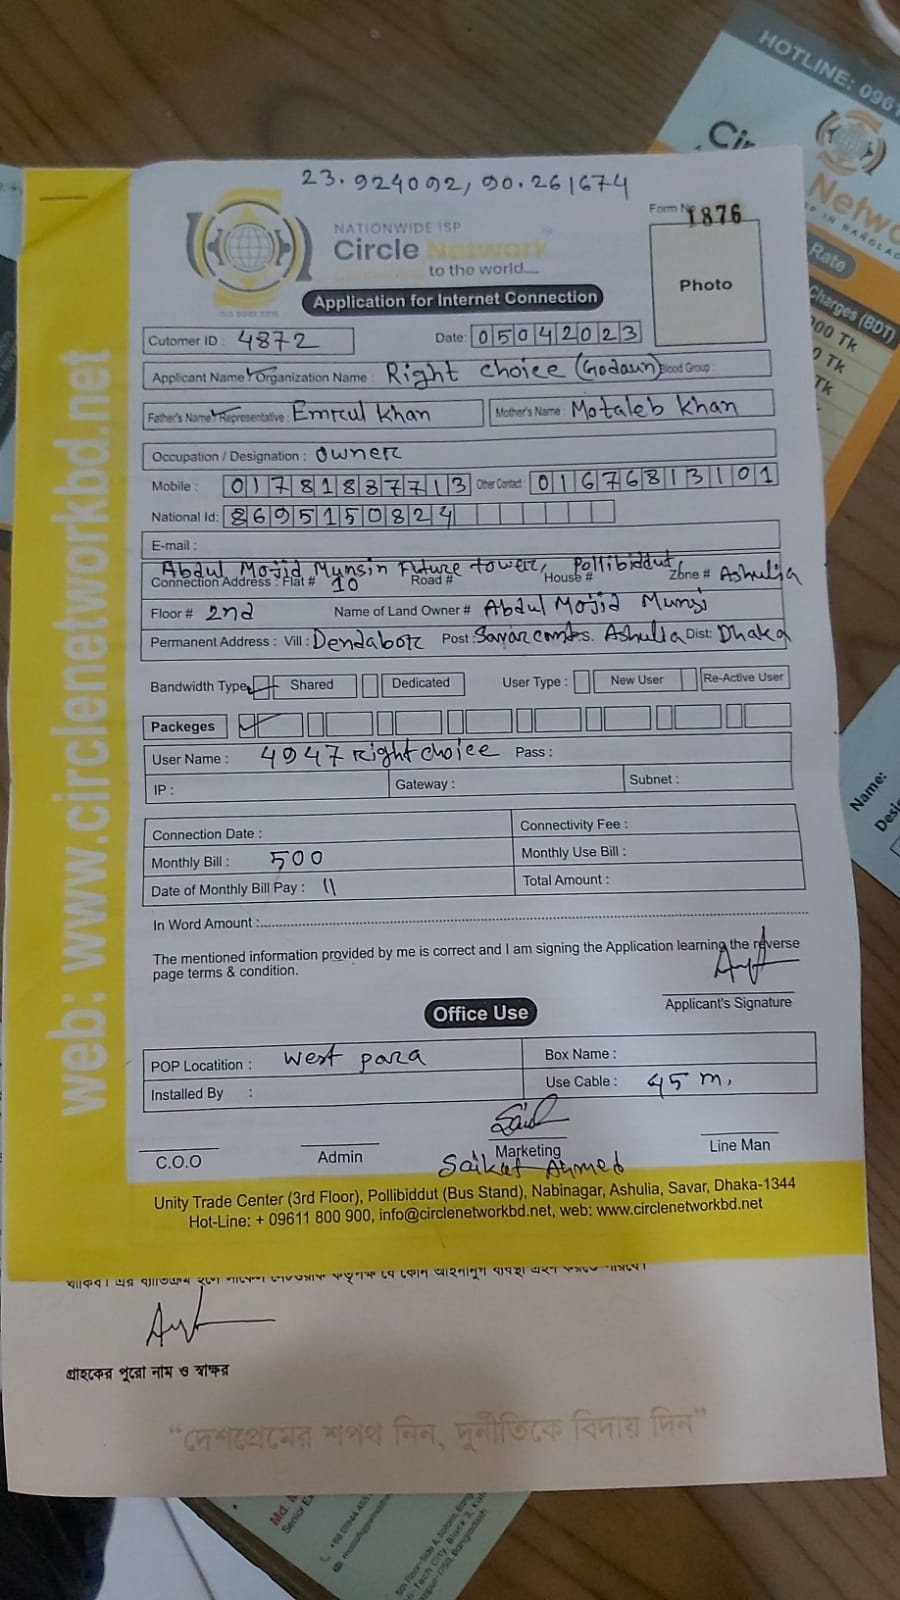 23.924092, 90.261674
NATIONWIDE ISP
Circle Network
to the world....
Form No 1876
Photo
Application for Internet Connection
Cutomer ID : 4872 Date: 05042023
Applicant Name / Organization Name : Right choice (Godaun) Blood Group :
Father's Name / Representative : Emrul Khan Mother's Name : Motaleb Khan
Occupation / Designation : owner
Mobile : 01781887713 Other Contact : 01676813101
National Id: 8695150824
E-mail :
Abdul Mojid Munsin Future tower, Pollibiddut,
Connection Address : Flat # 10 Road # House # Zone # Ashulia
Floor # 2nd Name of Land Owner # Abdul Mojid Munsi
Permanent Address : Vill : Dendabor Post : Savar Ashulia Dist: Dhaka
Bandwidth Type Shared Dedicated User Type : New User Re-Active User
Packeges
User Name : 4947 Rightchoice Pass :
IP : Gateway : Subnet :
Connection Date : Connectivity Fee :
Monthly Bill : 500 Monthly Use Bill :
Date of Monthly Bill Pay : 11 Total Amount :
In Word Amount :
The mentioned information provided by me is correct and I am signing the Application learning the reverse
page terms & condition.
Applicant's Signature
Office Use
POP Locatition : West para Box Name :
Installed By : Use Cable : 45 m.
C.O.O Admin Marketing Line Man
Saikat Ahmed
Unity Trade Center (3rd Floor), Pollibiddut (Bus Stand), Nabinagar, Ashulia, Savar, Dhaka-1344
Hot-Line: + 09611 800 900, info@circlenetworkbd.net, web: www.circlenetworkbd.net
web: www.circlenetworkbd.net
গ্রাহকের পুরো নাম ও স্বাক্ষর
"দেশপ্রেমের শপথ নিন, দুর্নীতিকে বিদায় দিন"
HOTLINE: 0961
Rate
Charges (BDT)
Name: